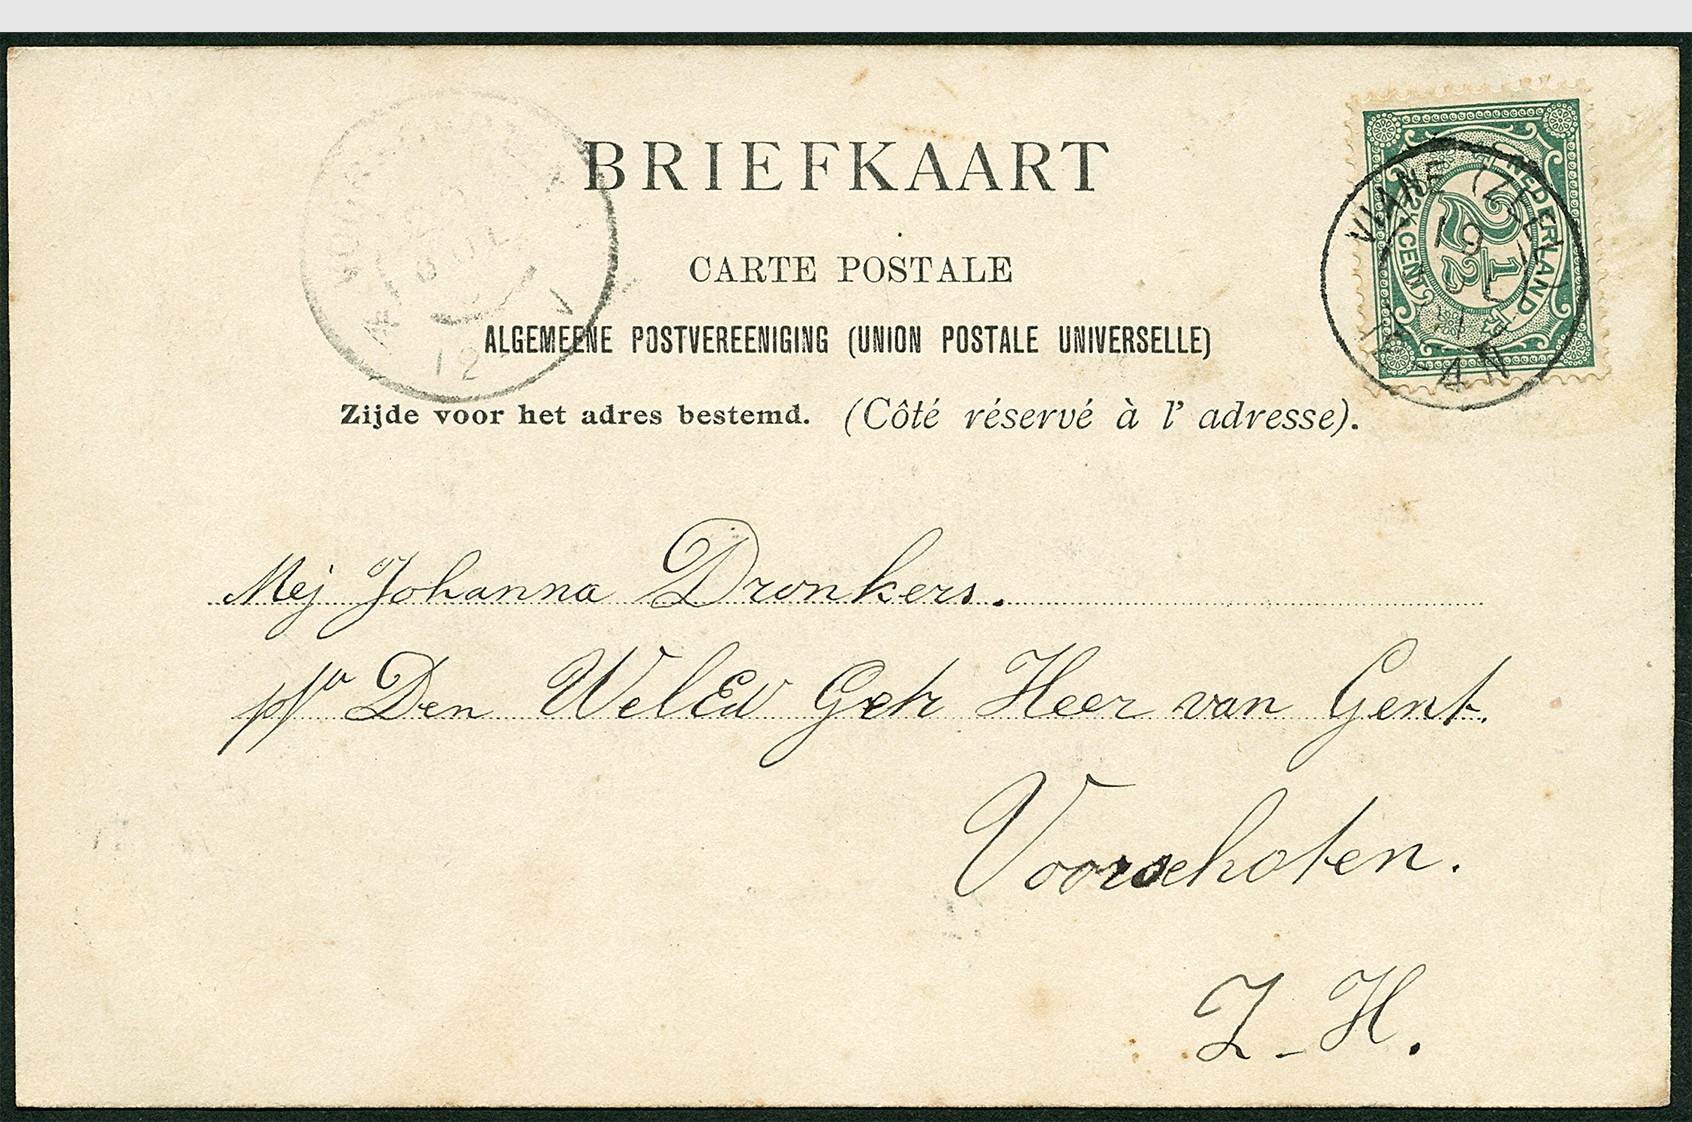 BRIEFKAART
CARTE POSTALE
ALGEMEENE POSTVEREENIGING (UNION POSTALE UNIVERSELLE)
Zijde voor het adres bestemd. (Côté réservé à l' adresse).
NEDERLAND
2½
CENT
VIANE (ZEEL)
19
4 N
12
4
V
Mej Johanna Dronkers.
p/a Den WelEd Geb Heer van Gent.
Voorschoten.
Z-H.